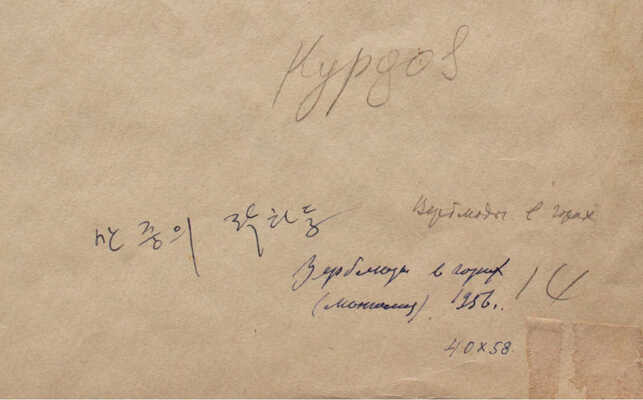 Курдов
산중의 락타들
Верблюды в горах
Верблюды в горах
(Монголия). 1956г.
14
40x58.